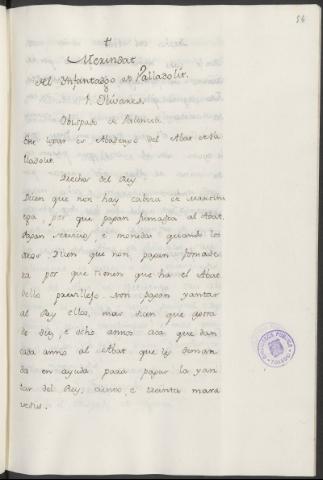 54
†
Merindat
del Infantadgo de Valladolit.
1. Olivares.
Obispado de Palencia
Este logar es Abadengo del Abat de Va
lladolit.
Derechos del Rey
Dicen que non hay cabeza de Martini
ega por que pagan fumadga al Abat.
Pagan servicios, e monedas quando los
otros. Dicen que non pagan fonsade
ra por que tienen que ha el Abat
dello previllejo non pagan yantar
al Rey ellos, mas dicen que agora
de diez, e ocho annos aca que dan
cada anno al Abat que les deman
da en ayuda para pagar la yan
tar del Rey, ciento, e treinta mara
vedis.
BIBLIOTECA PUBLICA
TOLEDO